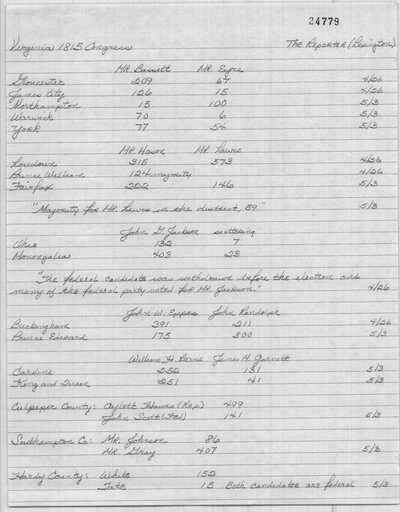 24779
Virginia 1815 Congress The Reporter (Lexington)
Mr. Bassett Mr. Eyre
Gloucester 209 67 4/26
James City 126 15 4/26
Northampton 15 100 5/3
Warwick 70 6 5/3
York 77 54 5/3
Mr. Mason Mr. Lewis
Loudoun 315 573 4/26
Prince William 124 majority 4/26
Fairfax 202 146 5/3
"Majority for Mr. Lewis in the district, 59" 5/3
John G. Jackson scattering
Ohio 132 7
Monongalia 403 23
"The federal candidate was withdrawn before the election and
many of the federal party voted for Mr. Jackson." 4/26
John W. Eppes John Randolph
Buckingham 391 211 4/26
Prince Edward 175 300 5/3
William H. Roane James M. Garnett
Caroline 252 131 5/3
King and Queen 251 41 5/3
Culpeper County: Aylett Hawes (Rep) 499
John Scott (Fed) 141 5/3
Southampton Co: Mr. Johnson 86
Mr. Gray 407 5/3
Hardy County: White 152
Tate 15 Both candidates are federal 5/3